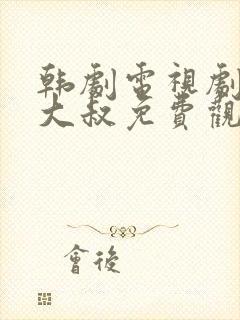 韩劇電視劇
大叔免費觀
會後